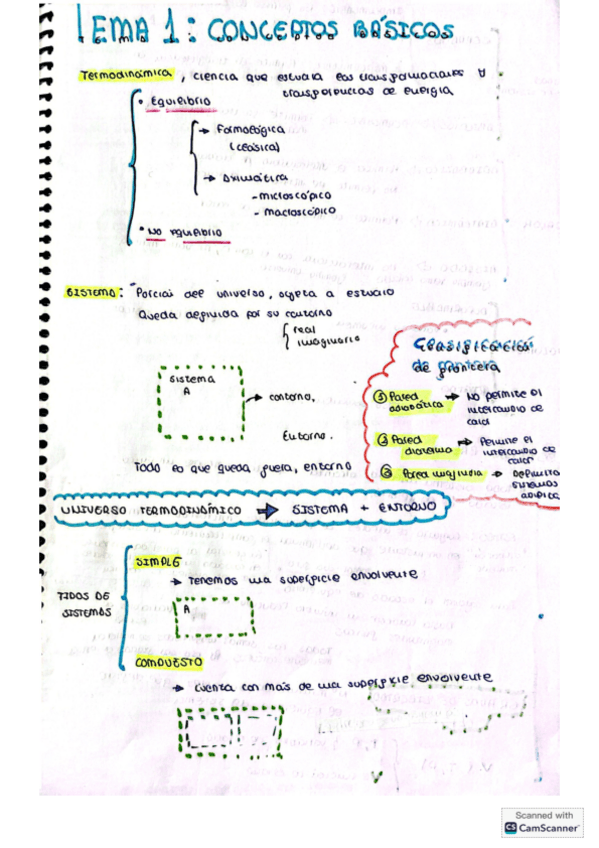 TEMA 1: CONCEPTOS BÁSICOS
Termodinámica, ciencia que estudia las transformaciones y
transferencias de energía
• Equilibrio
→ Formológica
(clásica)
→ Axiomática
- microscópico
- macroscópico
• No equilibrio
SISTEMA: Porción del universo, sujeta a estudio
Queda definida por su contorno
real
imaginario
Clasificación
de frontera
sistema
A
→ contorno.
Entorno.
Todo lo que queda fuera, entorno
① Pared → No permite el
adiabática intercambio de
calor
② Pared → Permite el
diatermo intercambio de
calor
③ Pared imaginaria → Definir
sistemas
UNIVERSO TERMODINÁMICO → SISTEMA + ENTORNO
TIPOS DE
SISTEMAS
SIMPLE
→ Tenemos una superficie envolvente
A
COMPUESTO
→ Cuenta con más de una superficie envolvente
Scanned with
CS CamScanner